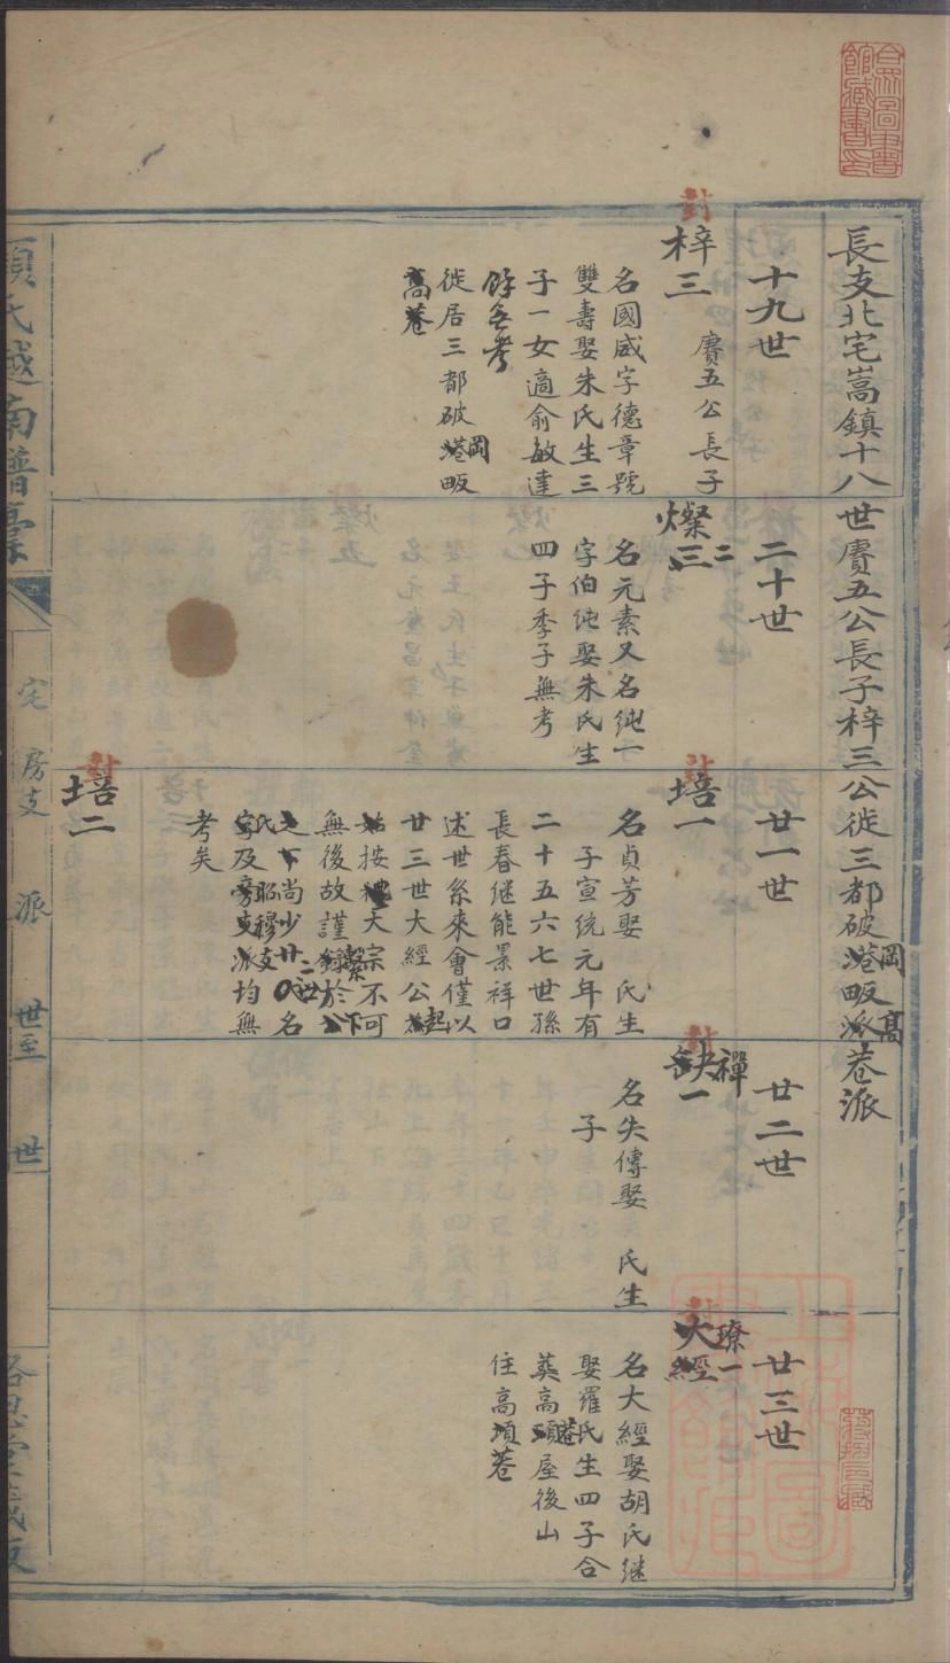 長支北宅嵩鎮十八世賡五公長子梓三公徙三都破岡畈高巷派
十九世
二十世
廿一世
廿二世
廿三世
梓三
賡五公長子
名國威字德章號
雙壽娶朱氏生三
子一女適俞敏達
餘無考
徙居三都破岡畈
高巷
燦二
名元素又名純一
字伯純娶朱氏生
四子季子無考
培一
名貞芳娶 氏生
子宣統元年有
二十五六七世孫
長春继能景祥口
述世系來會僅以
廿三世大經公起
按禮大宗不可
無後故謹繫於下
尚少廿二世名
氏昭穆支派均無
考矣
培二
禪一
名失傳娶 氏生
子
大經
璙一
名大經娶胡氏继
娶羅氏生四子合
葬高巷屋後山
住高項巷
項氏越南譜臺
宅
房支
派
世至
世